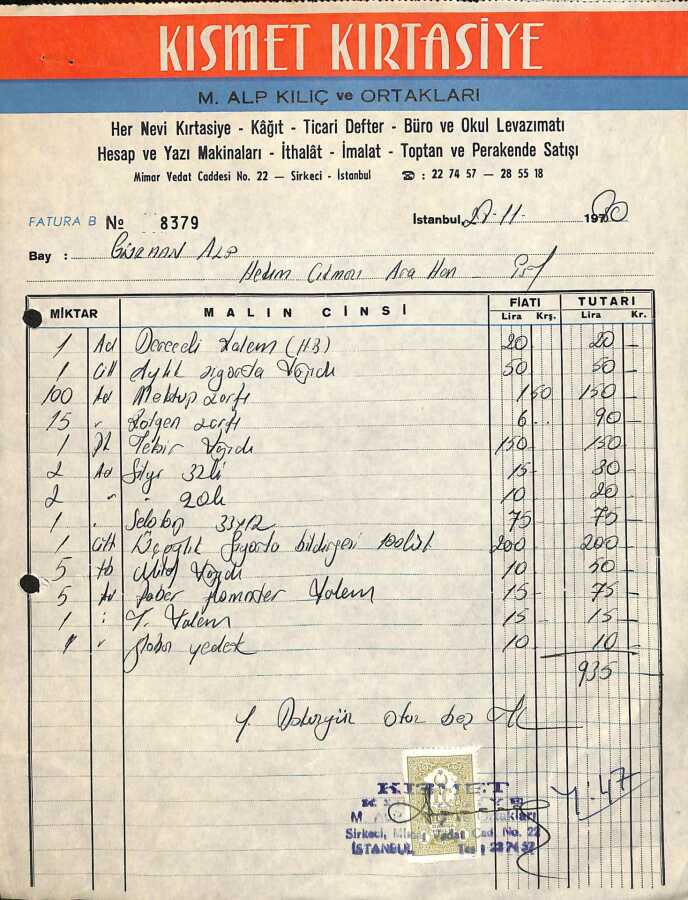 KISMET KIRTASİYE
M. ALP KILIÇ ve ORTAKLARI
Her Nevi Kırtasiye - Kâğıt - Ticari Defter - Büro ve Okul Levazımatı
Hesap ve Yazı Makinaları - İthalât - İmalat - Toptan ve Perakende Satışı
Mimar Vedat Caddesi No. 22 — Sirkeci - İstanbul ☎ : 22 74 57 — 28 55 18
FATURA B No 8379
İstanbul, 27-11- 1980
Bay : Gürhan Alp
Han
MİKTAR MALIN CİNSİ FİATI TUTARI
Lira Krş. Lira Kr.
1 Ad Dereceli Kalem (HB) 20 20 -
1 Cilt Aylık sigorta 50 50 -
100 Ad Mektup zarfı 1 50 150 -
15 " zarfı 6 .. 90 -
1 150 150
2 Ad 32li 15 - 30 -
2 " " 20li 10 20 -
1 " 33x12 75 75 -
1 Cilt Üçaylık Sigorta bildirgesi 100lük 200 200 -
5 10 50 -
5 Ad Faber Kalem 15 - 75 -
1 : Kalem 15 - 15 -
1 " yedek 10 10 -
935
Y. Dokuzyüz otuz beş TL
KISMET
M. ALP Ortakları
Sirkeci, Mimar Vedat Cad. No. 22
İSTANBUL Tel : 22 74 57